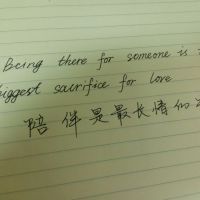 Being there for someone is
biggest sacrifice for love
陪伴是最长情的